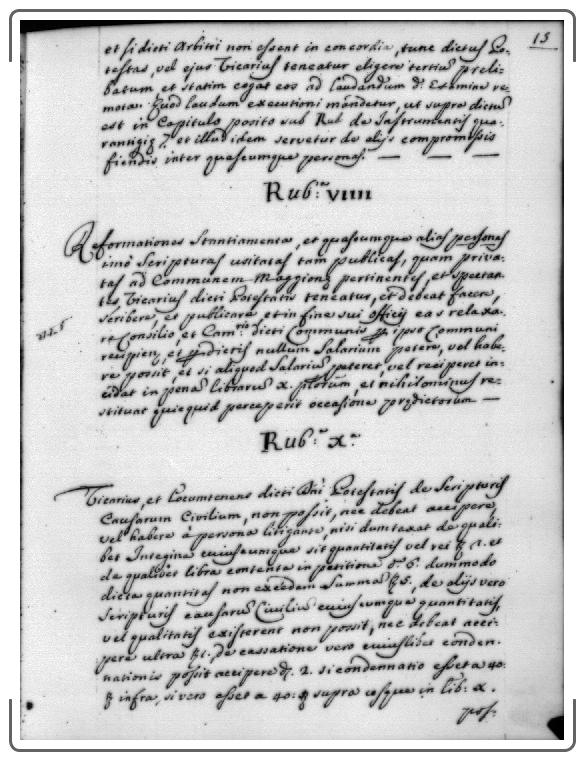 15
et si dicti Arbitri non essent in concordia, tunc dictus Po-
testas, vel ejus Vicarius teneatur eligere tertiũ preli-
batum et statim cogat eos ad laudandum d. Estimine re-
mota. Quod laudum executioni mandetur, ut supra dictũ
est in Capitulo posito sub Rub. de Instrumentis qua-
rantigijs et illud idem servetur de alijs compromissis
fiendis inter quascumque personas. — — —
Rub.ª VIIII
Reformationes Stantiamenta, et quascumque alias personas
imò Scripturas usitatas tam publicas, quam priva-
tas ad Communem Maggione pertinentes, et spectan-
tes Vicarius dicti Potestatis teneatur, et debeat facere,
scribere, et publicare et in fine sui officij eas relaxa-
re Consilio, et Cam.rio dicti Communis ipsi Communi
recipien, et prædictis nullum Salarium petere, vel habe-
re possit, et si aliquod Salariũ peteret, vel reciperet in-
cidat in penã librarum x. et nihilominus re-
stituat quicquid perceperit occasione prædictorum —
Rub.ª X.ª
Vicarius, et Locumtenens dicti Dñi Potestatis de Scripturis
Causarum Civilium, non possit, nec debeat accipere,
vel habere à persona litigante, nisi dumtaxat de quali-
bet Integina cuiuscumque sit quantitatis vel rei 1. et
de qualibet libra contenta in petitione 6. dummodo
dicta quantitas non excedam Summã 5, de alijs vero
Scripturis causarũ Civiliũ cuiuscumque quantitatis,
vel qualitatis existerent non possit, nec debeat acci-
pere ultra 1. de cassatione vero cuiuslibet conden-
nationis possit accipere 2. si condennatio esset a 40:
infra, si vero esset a 40: supra usque in lib: x.
pos-